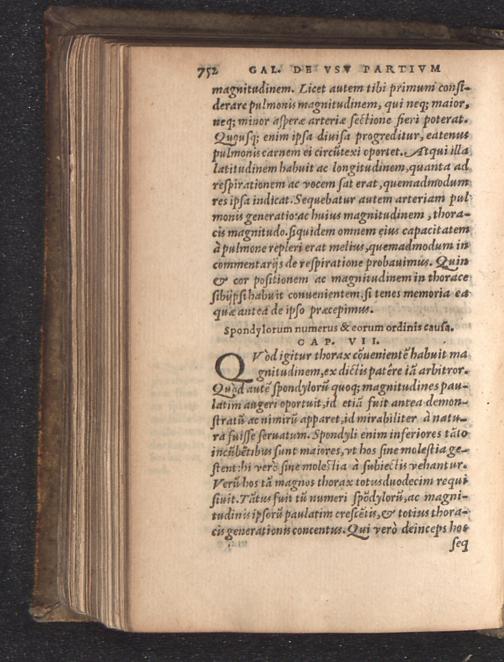 752 GAL. DE VSV PARTIVM
magnitudinem. Licet autem tibi primum consi-
derare pulmonis magnitudinem, qui neq; maior,
neq; minor asperæ arteriæ sectione fieri poterat.
Quousq; enim ipsa diuisa progreditur, eatenus
pulmonis carnem ei circũtexi oportet. Atqui illa
latitudinem habuit ac longitudinem, quanta ad
respirationem ac vocem sat erat, quemadmodum
res ipsa indicat. Sequebatur autem arteriam pul
monis generatio: ac huius magnitudinem, thora-
cis magnitudo. siquidem omnem eius capacitatem
à pulmone repleri erat melius, quemadmodum in
commentarijs de respiratione probauimus. Quin
& cor positionem ac magnitudinem in thorace
sibijpsi habuit conuenientem, si tenes memoria ea
quæ antea de ipso præcepimus.
Spondylorum numerus & eorum ordinis causa.
CAP. VII.
QVòd igitur thorax cõuenientẽ habuit ma
gnitudinem, ex dictis patêre iã arbitror.
Quòd autẽ spondylorũ quoq; magnitudines pau-
latim augeri oportuit, id etiã fuit antea demon-
stratũ ac nimirũ apparet, id mirabiliter à natu-
ra fuisse seruatum. Spondyli enim inferiores tãto
incũbẽtibus sunt maiores, vt hos sine molestia ge-
stent: hi verò sine molestia à subiectis vehantur.
Verũ hos tã magnos thorax totus duodecim requi
siuit. Tãtus fuit tũ numeri spõdylorũ, ac magni-
tudinis ipsorũ paulatim crescẽtis, & totius thora-
cis generationis concentus. Qui verò deinceps hos
seq